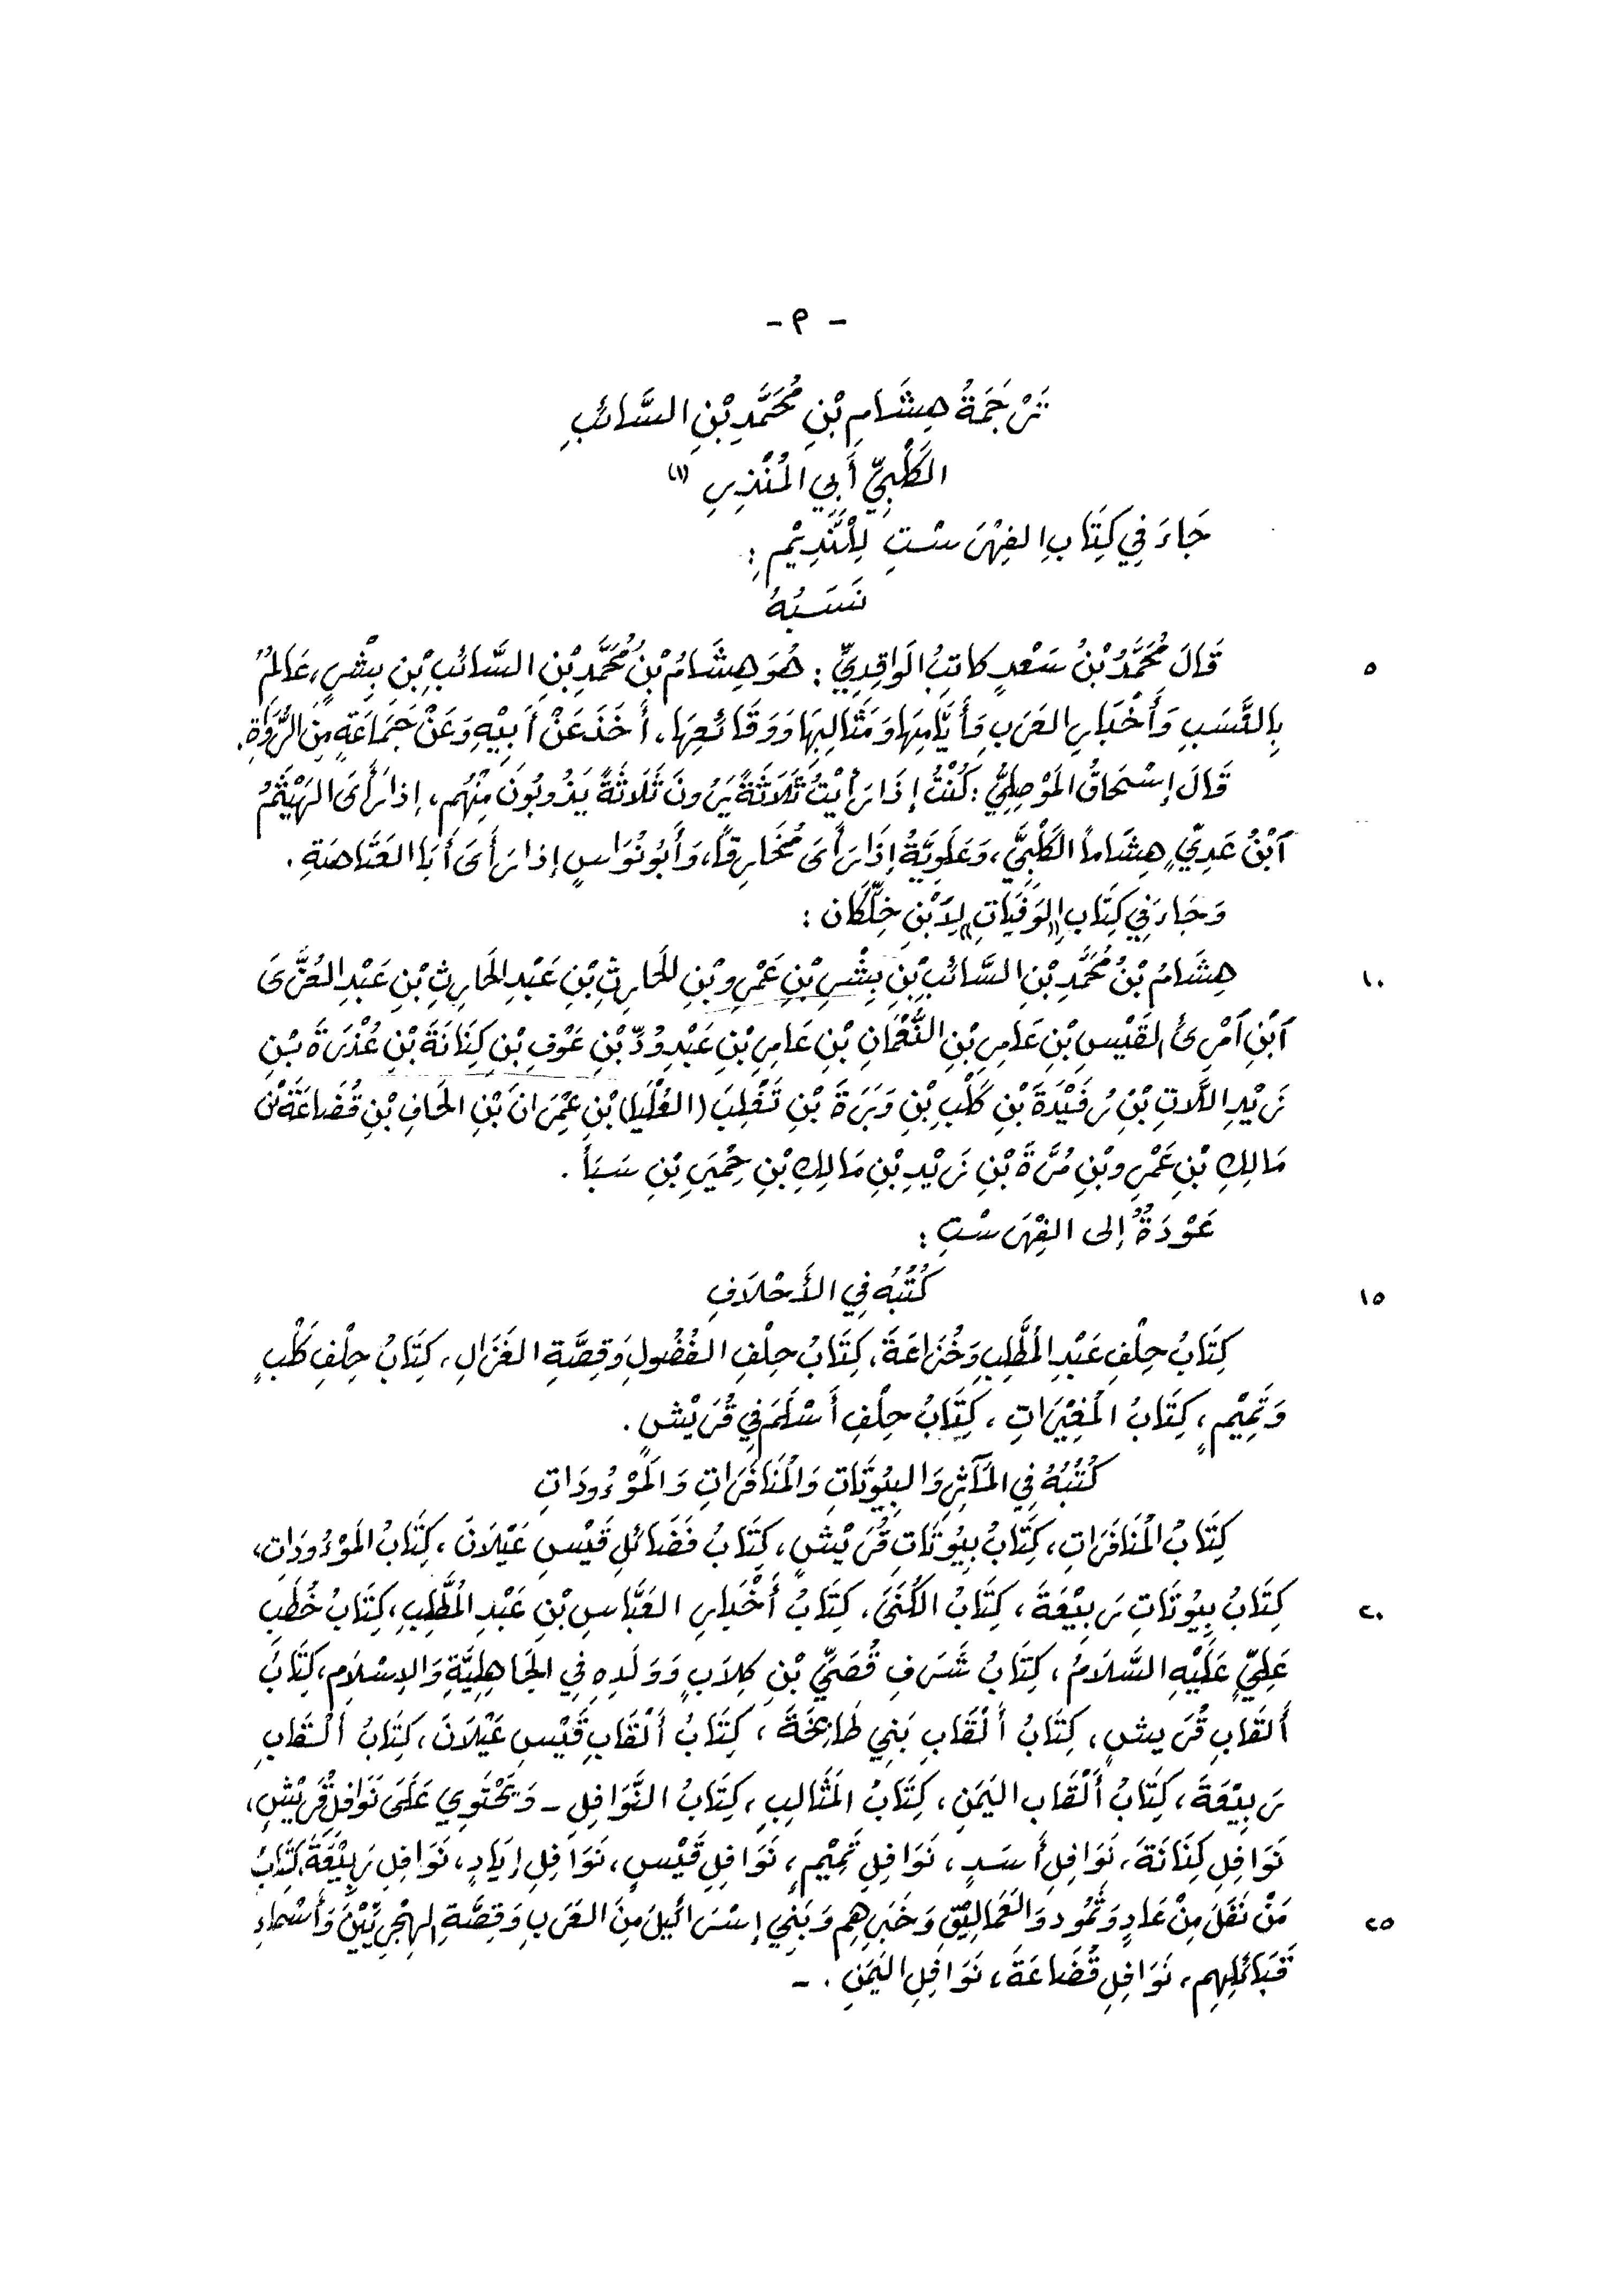 - ٩ -
تَرْجَمَةُ هِشَامِ بْنِ مُحَمَّدِ بْنِ السَّائِبِ
الكَلْبِيِّ أَبِي المُنْذِرِ (١)
جَاءَ فِي كِتَابِ الفِهْرَسْتِ لِلنَّدِيْمِ :
نَسَبُهُ
٥ قَالَ مُحَمَّدُ بْنُ سَعْدٍ كَاتِبُ الوَاقِدِيِّ : هُوَ هِشَامُ بْنُ مُحَمَّدِ بْنِ السَّائِبِ بْنِ بِشْرٍ، عَالِمٌ
بِالنَّسَبِ وَأَخْبَارِ العَرَبِ وَأَيَّامِهَا وَمَثَالِبِهَا وَوَقَائِعِهَا، أَخَذَ عَنْ أَبِيْهِ وَعَنْ جَمَاعَةٍ مِنَ الرُّوَاةِ.
قَالَ إِسْحَاقُ المَوْصِلِيُّ : كُنْتُ إِذَا رَأَيْتُ ثَلَاثَةً يَرُونَ ثَلَاثَةً يَذُوبُونَ مِنْهُم، إِذَا رَأَى الهَيْثَمُ
آبْنُ عَدِيٍّ هِشَاماً الكَلْبِيَّ، وَعَلَوِيَّةُ إِذَا رَأَى مُخَارِقاً، وَأَبُو نُوَاسٍ إِذَا رَأَى أَبَا العَتَاهِيَةِ.
وَجَاءَ فِي كِتَابِ «الوَفَيَاتِ» لِآبْنِ خِلِّكَان :
١٠ هِشَامُ بْنُ مُحَمَّدِ بْنِ السَّائِبِ بْنِ بِشْرِ بْنِ عَمْرِو بْنِ الحَارِثِ بْنِ عَبْدِ الحَارِثِ بْنِ عَبْدِ العُزَّى
آبْنِ آمْرِئِ القَيْسِ بْنِ عَامِرِ بْنِ النُّعْمَانِ بْنِ عَامِرِ بْنِ عَبْدِ وُدِّ بْنِ عَوْفِ بْنِ كِنَانَةَ بْنِ عُذْرَةَ بْنِ
زَيْدِ اللَّاتِ بْنِ رُفَيْدَةَ بْنِ كَلْبِ بْنِ وَبَرَةَ بْنِ تَغْلِبَ (الغُلْبَا) بْنِ عِمْرَانَ بْنِ الحَافِ بْنِ قُضَاعَةَ بْنِ
مَالِكِ بْنِ عَمْرِو بْنِ مُرَّةَ بْنِ زَيْدِ بْنِ مَالِكِ بْنِ حِمْيَرِ بْنِ سَبَأ.
عَوْدَةٌ إِلى الفِهْرَسْتِ :
١٥ كُتُبُهُ فِي الأَحْلَافِ
كِتَابُ حِلْفِ عَبْدِ المُطَّلِبِ وَخُزَاعَةَ، كِتَابُ حِلْفِ الفُضُولِ وَقِصَّةِ الغَزَالِ، كِتَابُ حِلْفِ كَلْبٍ
وَتَمِيْمٍ، كِتَابُ المُغِيْرَاتِ، كِتَابُ حِلْفِ أَسْلَمَ فِي قُرَيْشٍ.
كُتُبُهُ فِي المَآثِرِ وَالبِيُوتَاتِ وَالمُنَافَرَاتِ وَالمَوْءُودَاتِ
كِتَابُ المُنَافَرَاتِ، كِتَابُ بِيُوتَاتِ قُرَيْشٍ، كِتَابُ فَضَائِلِ قَيْسِ عَيْلَانَ، كِتَابُ المَوْءُودَاتِ،
٢٠ كِتَابُ بِيُوتَاتِ رَبِيْعَةَ، كِتَابُ الكُنَى، كِتَابُ أَخْبَارِ العَبَّاسِ بْنِ عَبْدِ المُطَّلِبِ، كِتَابُ خُطَبِ
عَلِيٍّ عَلَيْهِ السَّلَامُ، كِتَابُ شَرَفِ قُصَيِّ بْنِ كِلَابٍ وَوَلَدِهِ فِي الجَاهِلِيَّةِ وَالإِسْلَامِ، كِتَابُ
أَلقَابِ قُرَيشٍ، كِتَابُ أَلْقَابِ بَنِي طَابِخَةَ، كِتَابُ أَلْقَابِ قَيْسِ عَيْلَانَ، كِتَابُ أَلْقَابِ
رَبِيْعَةَ، كِتَابُ أَلْقَابِ اليَمَنِ، كِتَابُ المَثَالِبِ، كِتَابُ النَّوَافِلِ - وَيَحْتَوِي عَلَى نَوَافِلِ قُرَيْشٍ،
نَوَافِلِ كِنَانَةَ، نَوَافِلِ أَسَدٍ، نَوَافِلِ تَمِيْمٍ، نَوَافِلِ قَيْسٍ، نَوَافِلِ إِيَادٍ، نَوَافِلِ رَبِيْعَةَ، كِتَابُ
٢٥ مَنْ نَقَلَ مِنْ عَادٍ وَثَمُودَ وَالعَمَالِيْقِ وَجُرْهُم وَبَنِي إِسْرَائِيلَ مِنَ العَرَبِ وَقِصَّةِ الهِجْرِيِّيْنَ وَأَسْمَاءِ
قَبَائِلِهِم، نَوَافِلِ قُضَاعَةَ، نَوَافِلِ اليَمَنِ. -